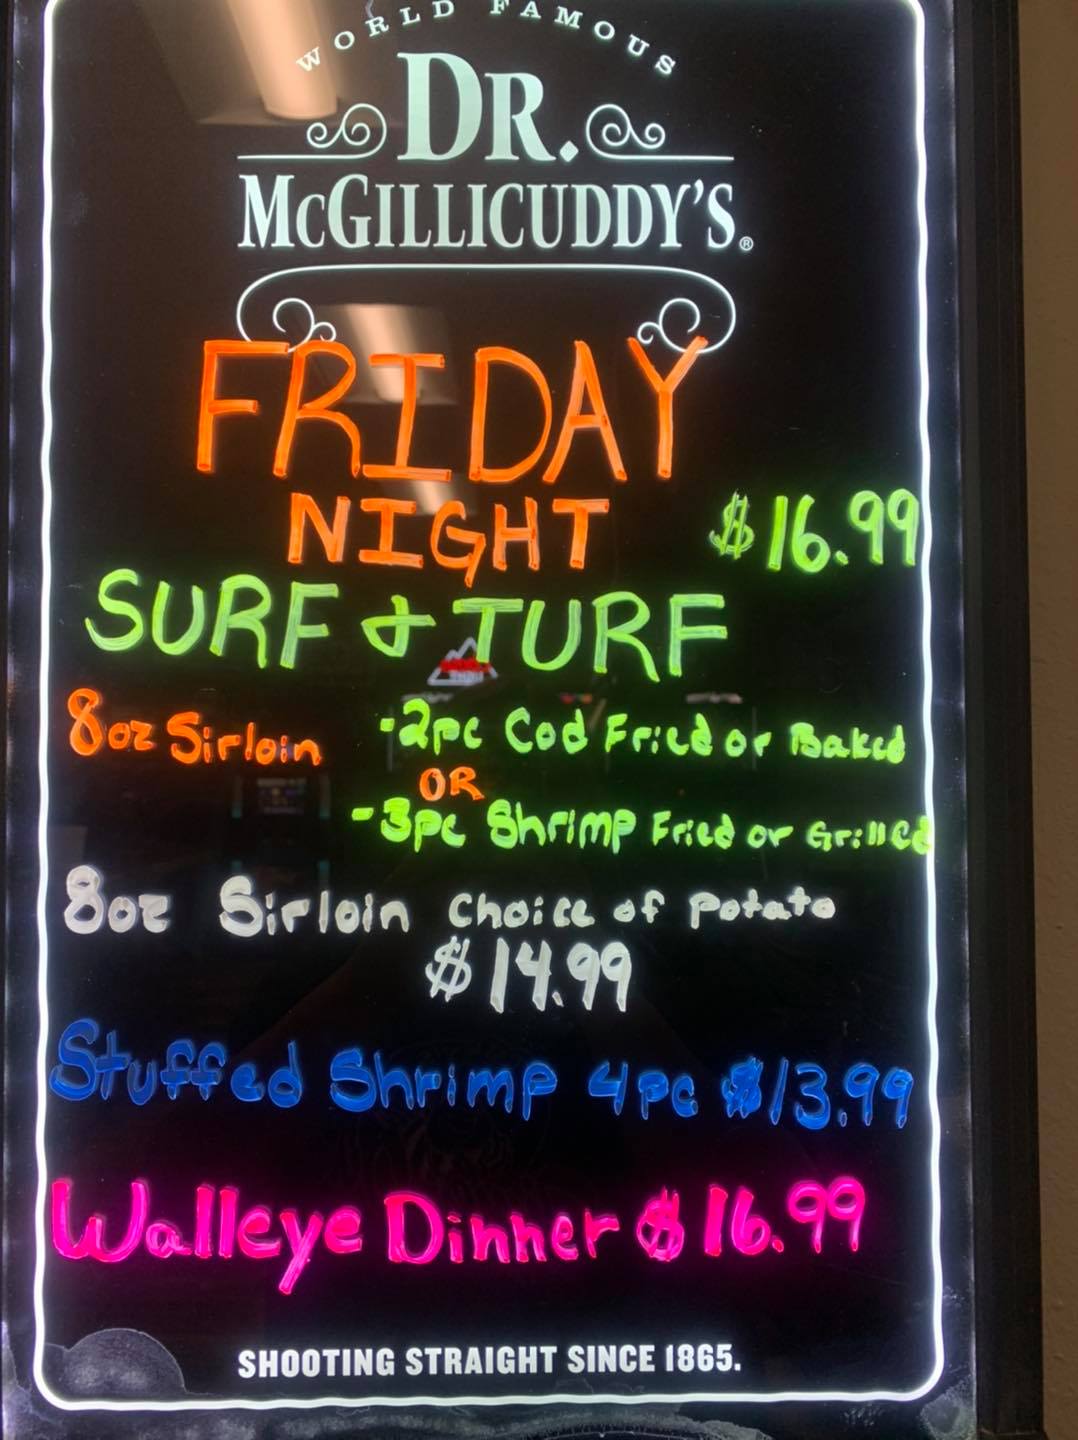 WORLD FAMOUS
DR.
McGILLICUDDY'S®
FRIDAY
NIGHT $16.99
SURF & TURF
8oz Sirloin -2pc Cod Fried or Baked
OR
-3pc Shrimp Fried or Grilled
8oz Sirloin Choice of Potato
$14.99
Stuffed Shrimp 4pc $13.99
Walleye Dinner $16.99
SHOOTING STRAIGHT SINCE 1865.